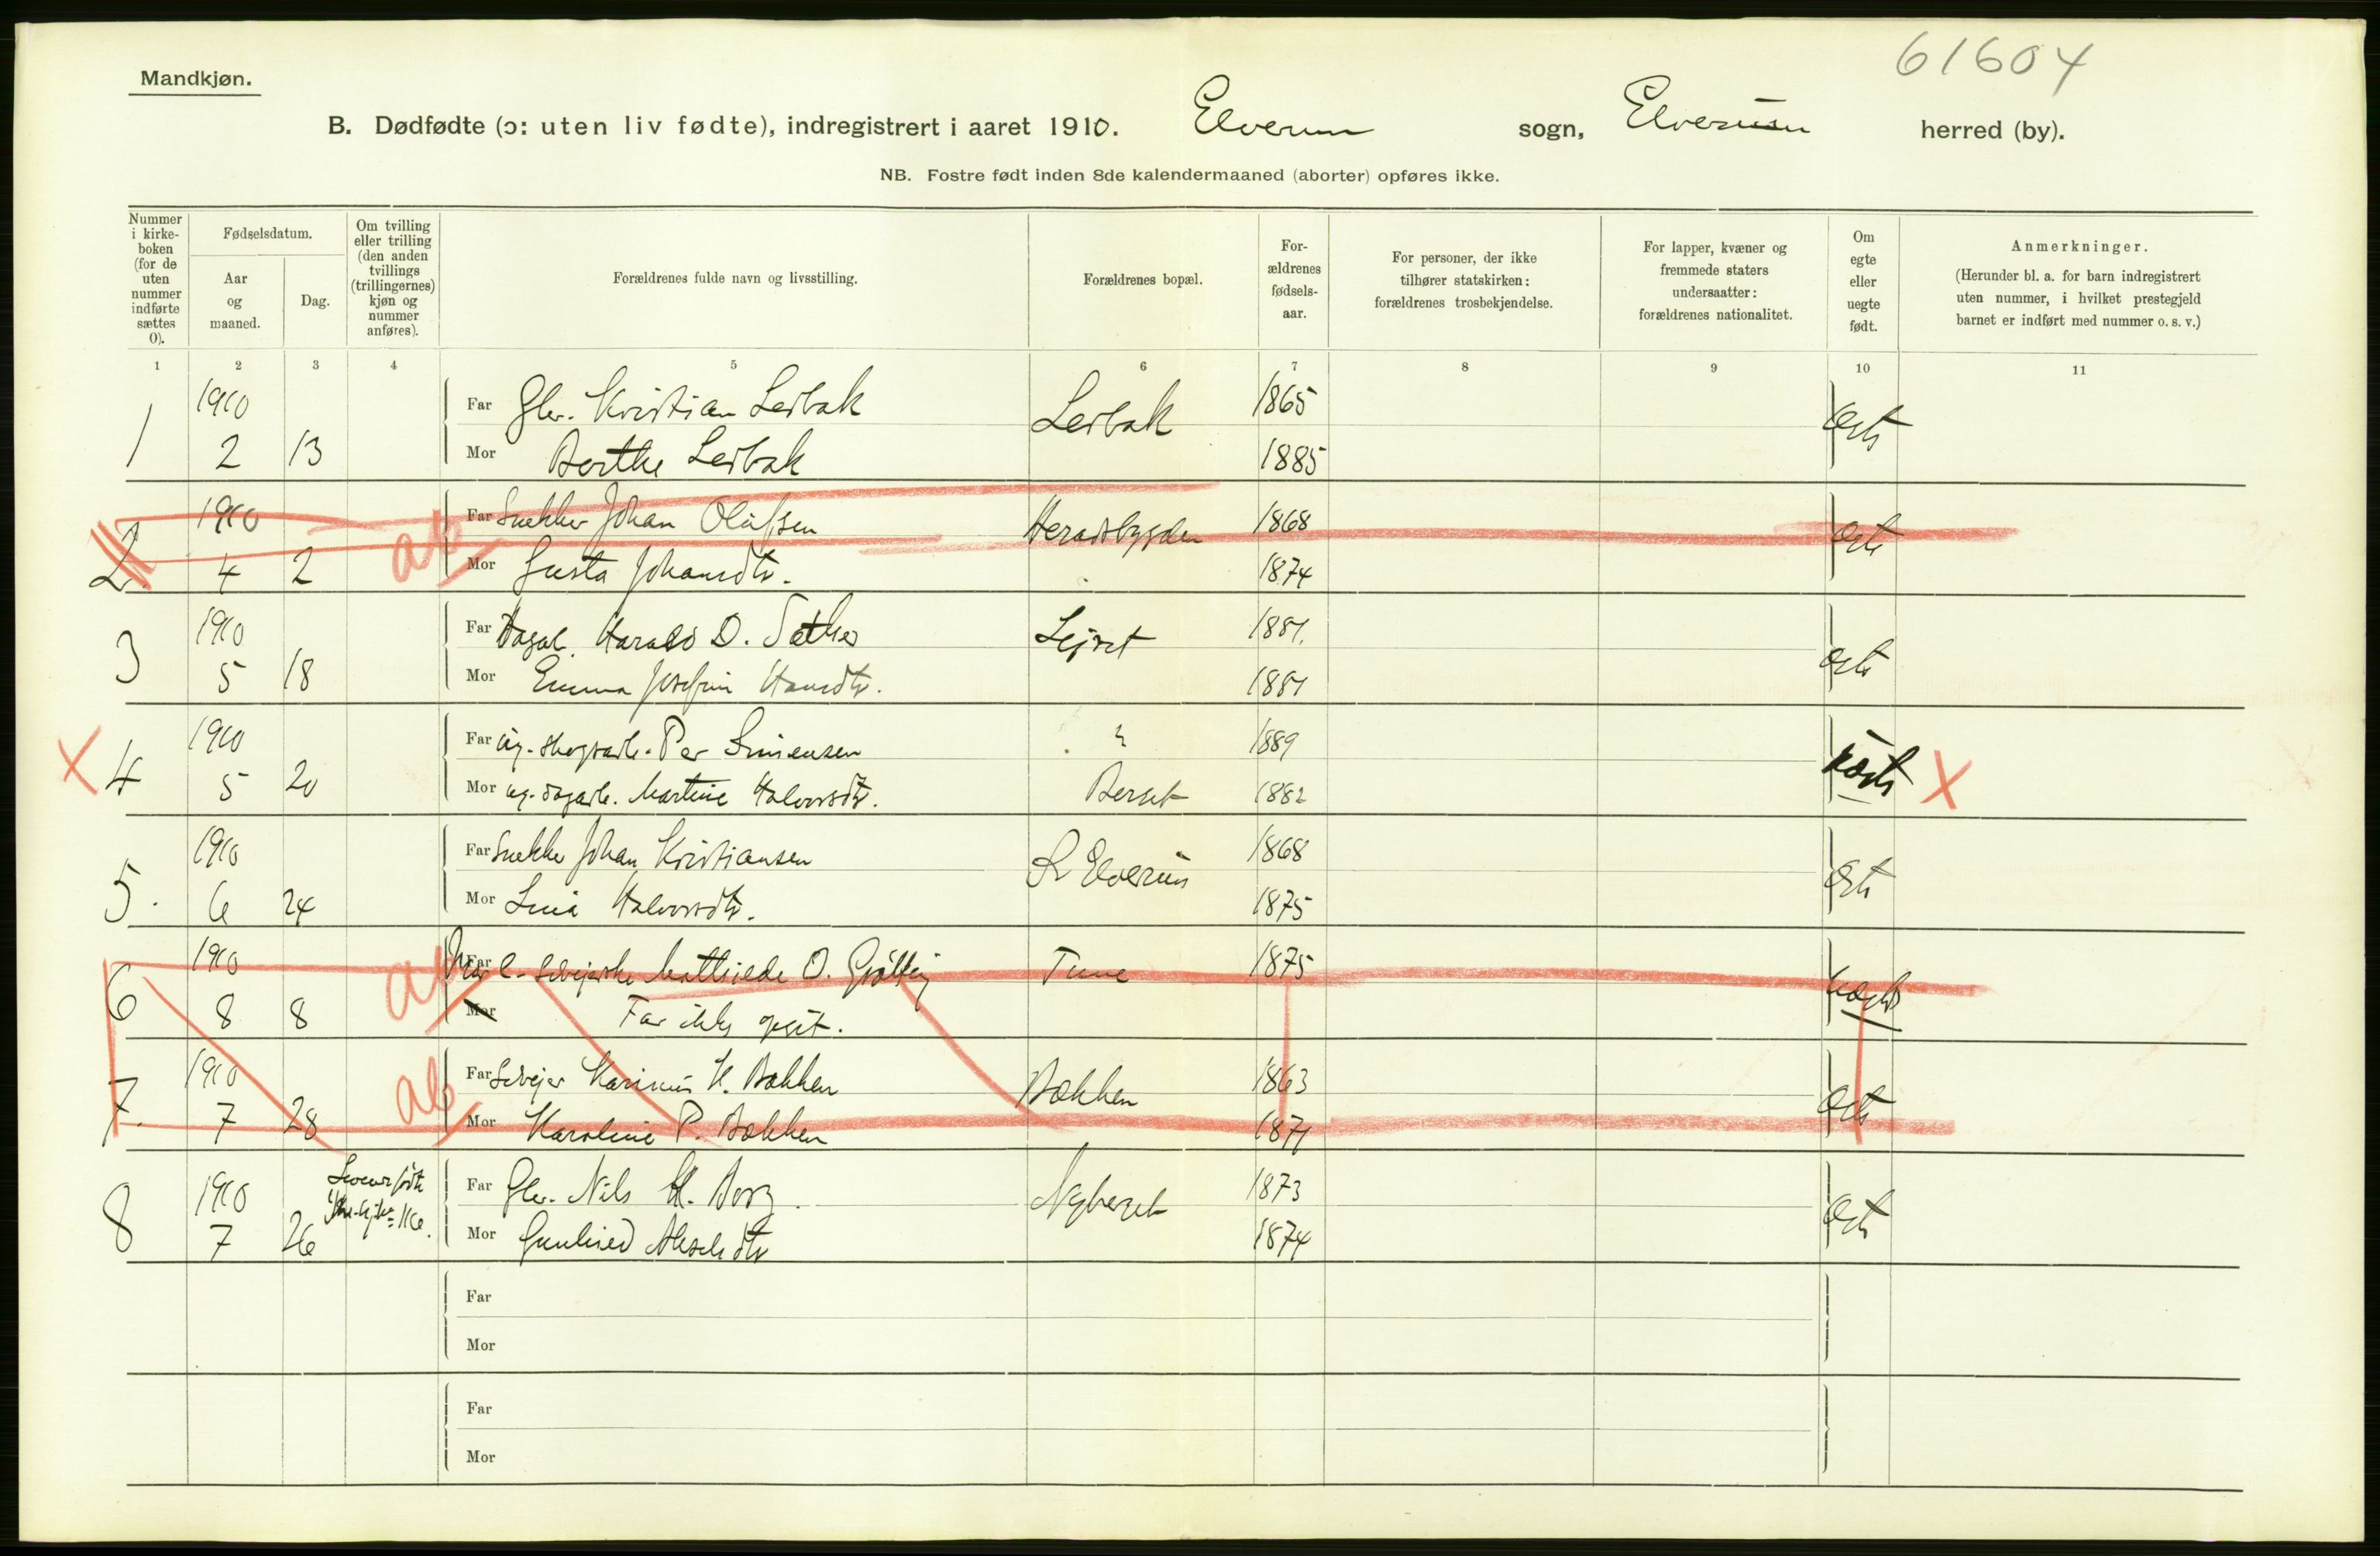 61604
Mandkjøn.
B. Dødfødte (ɔ: uten liv fødte), indregistrert i aaret 1910. Elverum sogn, Elverum herred (by).
NB. Fostre født inden 8de kalendermaaned (aborter) opføres ikke.
Nummer i kirke-boken (for de uten nummer indførte sættes 0).
Fødselsdatum.
Aar og maaned.
Dag.
Om tvilling eller trilling (den anden tvillings (trillingernes) kjøn og nummer anføres).
Forældrenes fulde navn og livsstilling.
Forældrenes bopæl.
For-ældrenes fødsels-aar.
For personer, der ikke tilhører statskirken: forældrenes trosbekjendelse.
For lapper, kvæner og fremmede staters undersaatter: forældrenes nationalitet.
Om egte eller uegte født.
Anmerkninger.
(Herunder bl. a. for barn indregistrert uten nummer, i hvilket prestegjeld barnet er indført med nummer o. s. v.)
1 2 3 4 5 6 7 8 9 10 11
1 1910 Far Kristian Leibak Leibak 1865 Ægte
2 13 Mor Berthe Leibak 1885
2 1910 ab Far Snekker Johan Olufsen Heradsbygden 1868 Ægte
4 2 Mor Gusta Johansdtr. 1874
3 1910 Far Harald D. Sæther Lejret 1881. Ægte
5 18 Mor Emma Josefine Hansdtr. 1881
X 4 1910 Far ug. skogsarb. Per Simensen " 1889 uægte X
5 20 Mor ug. Martine Halvorsdtr. Berset 1882
5. 1910 Far Snekker Johan Kristiansen Elverum 1868 Ægte
6 24 Mor Lina Halvorsdtr. 1875
6 1910 ab Mor Mathilde O. 1875 uægte
8 8 Mor Far ikke opgit.
7. 1910 ab Far Selvejer H. Bækken Bækken 1863 Ægte
7 28 Mor Karoline P. Bækken 1871
8 1910 Far Nils Berg Nyberget 1873 Ægte
7 26 Mor 1874
Far
Mor
Far
Mor